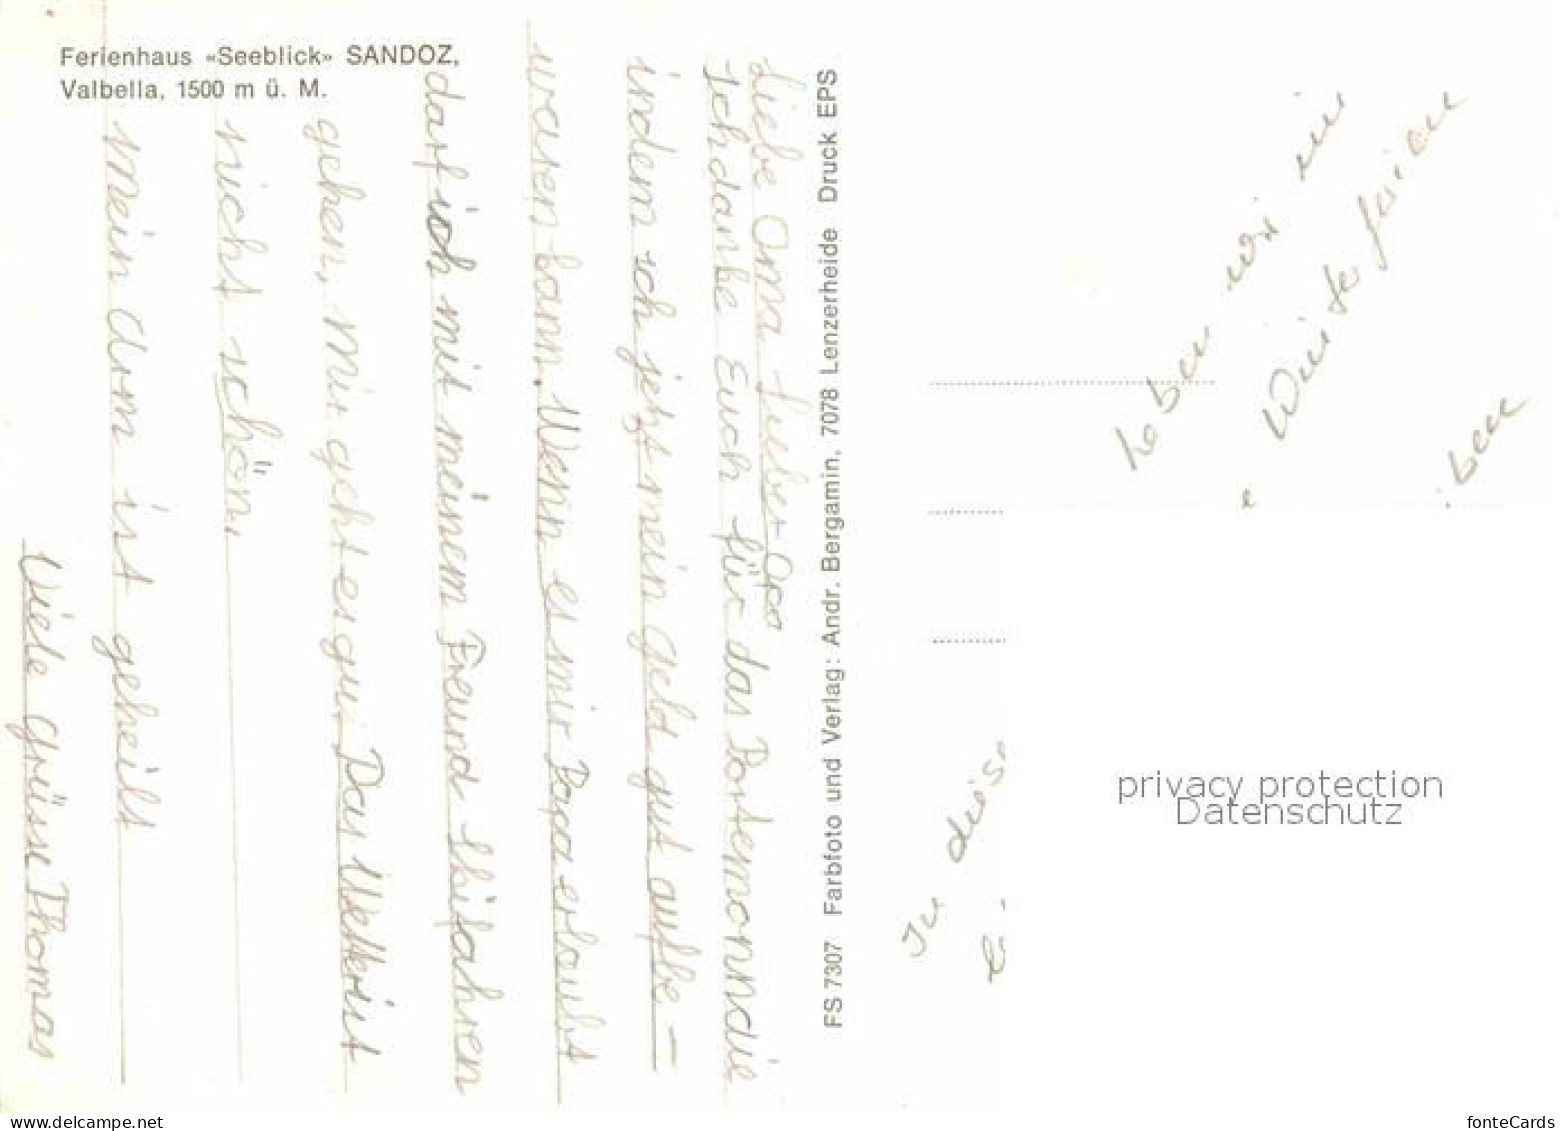 Ferienhaus «Seeblick» SANDOZ,
Valbella, 1500 m ü. M.
Liebe Oma Lieber Opa
Ich danke Euch für das Portemonndie
indem ich jetzt mein Geld gut aufbe-
waren kann. Wenn es mir Papa erlaubt
darf ich mit meinem Freund Skifahren
gehen. Mir geht es gut. Das Wetter ist
nicht schön.
Mein Arm ist geheilt
Viele Grüsse Thomas
FS 7307 Farbfoto und Verlag: Andr. Bergamin, 7078 Lenzerheide Druck EPS
haben wir im
Winterferien
ben
In diese
privacy protection
Datenschutz
www.delcampe.net
fonteCards